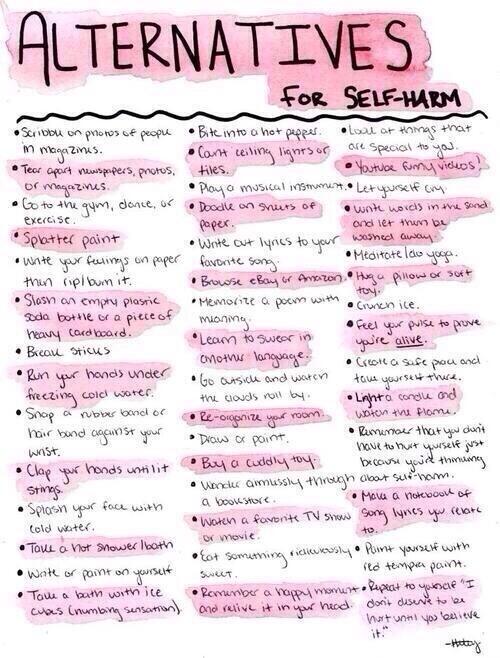 ALTERNATIVES
FOR SELF-HARM
• Scribble on photos of people
in magazines.
• Tear apart newspapers, photos,
or magazines.
• Go to the gym, dance, or
exercise.
• Splatter paint
• Write your feelings on paper
then rip/burn it.
• Slash an empty plastic
soda bottle or a piece of
heavy cardboard.
• Break sticks
• Run your hands under
freezing cold water.
• Snap a rubber band or
hair band against your
wrist.
• Clap your hands until it
stings.
• Splash your face with
cold water.
• Take a hot shower/bath
• Write or paint on yourself
• Take a bath with ice
cubes (numbing sensation)
• Bite into a hot pepper.
• Count ceiling lights or
tiles.
• Play a musical instrument.
• Doodle on sheets of
paper.
• Write out lyrics to your
favorite song.
• Browse eBay or Amazon.
• Memorize a poem with
meaning.
• Learn to swear in
another language.
• Go outside and watch
the clouds roll by.
• Re-organize your room.
• Draw or paint.
• Buy a cuddly toy.
• Wander aimlessly through
a bookstore.
• Watch a favorite TV show
or movie.
• Eat something ridiculously
sweet.
• Remember a happy moment
and relive it in your head.
• Look at things that
are special to you.
• Youtube funny videos!
• Let yourself cry.
• Write words in the sand
and let them be
washed away.
• Meditate/do yoga.
• Hug a pillow or soft
toy.
• Crunch ice.
• Feel your pulse to prove
you're alive.
• Create a safe place and
take yourself there.
• Light a candle and
watch the flame.
• Remember that you don't
have to hurt yourself just
because you're thinking
about self-harm.
• Make a notebook of
song lyrics you relate
to.
• Paint yourself with
red tempra paint.
• Repeat to yourself "I
don't deserve to be
hurt until you believe
it."